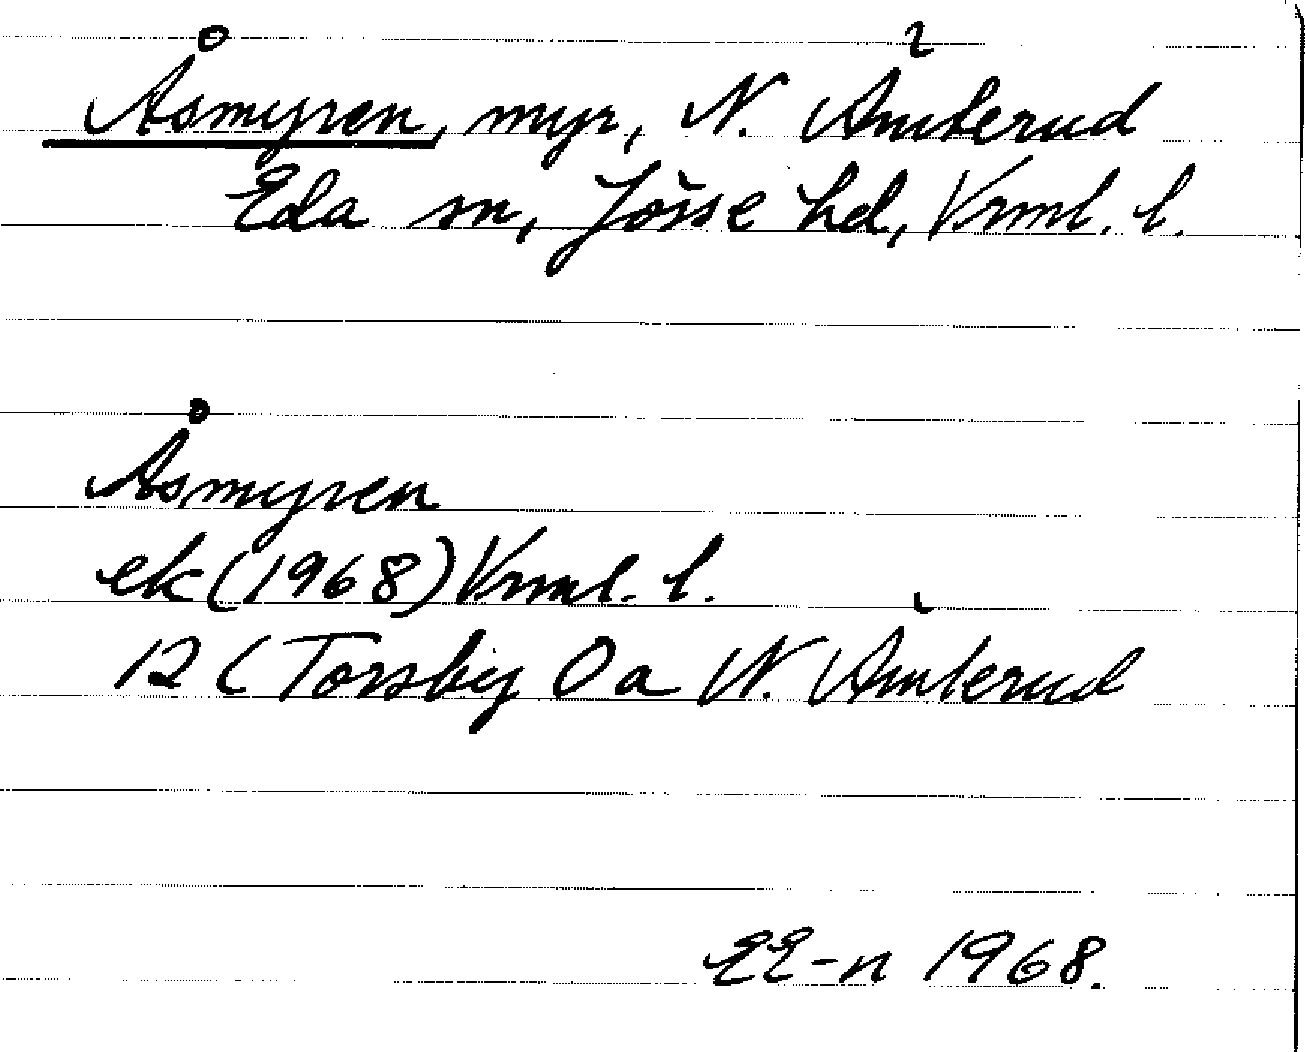 Åsmyren, myr, N. Åmterud
Eda sn, Jösse hd, Vrml. l.
Åsmyren
ek (1968) Vrml. l.
12 ( Torsby Oa N. Åmterud
EE-n 1968.